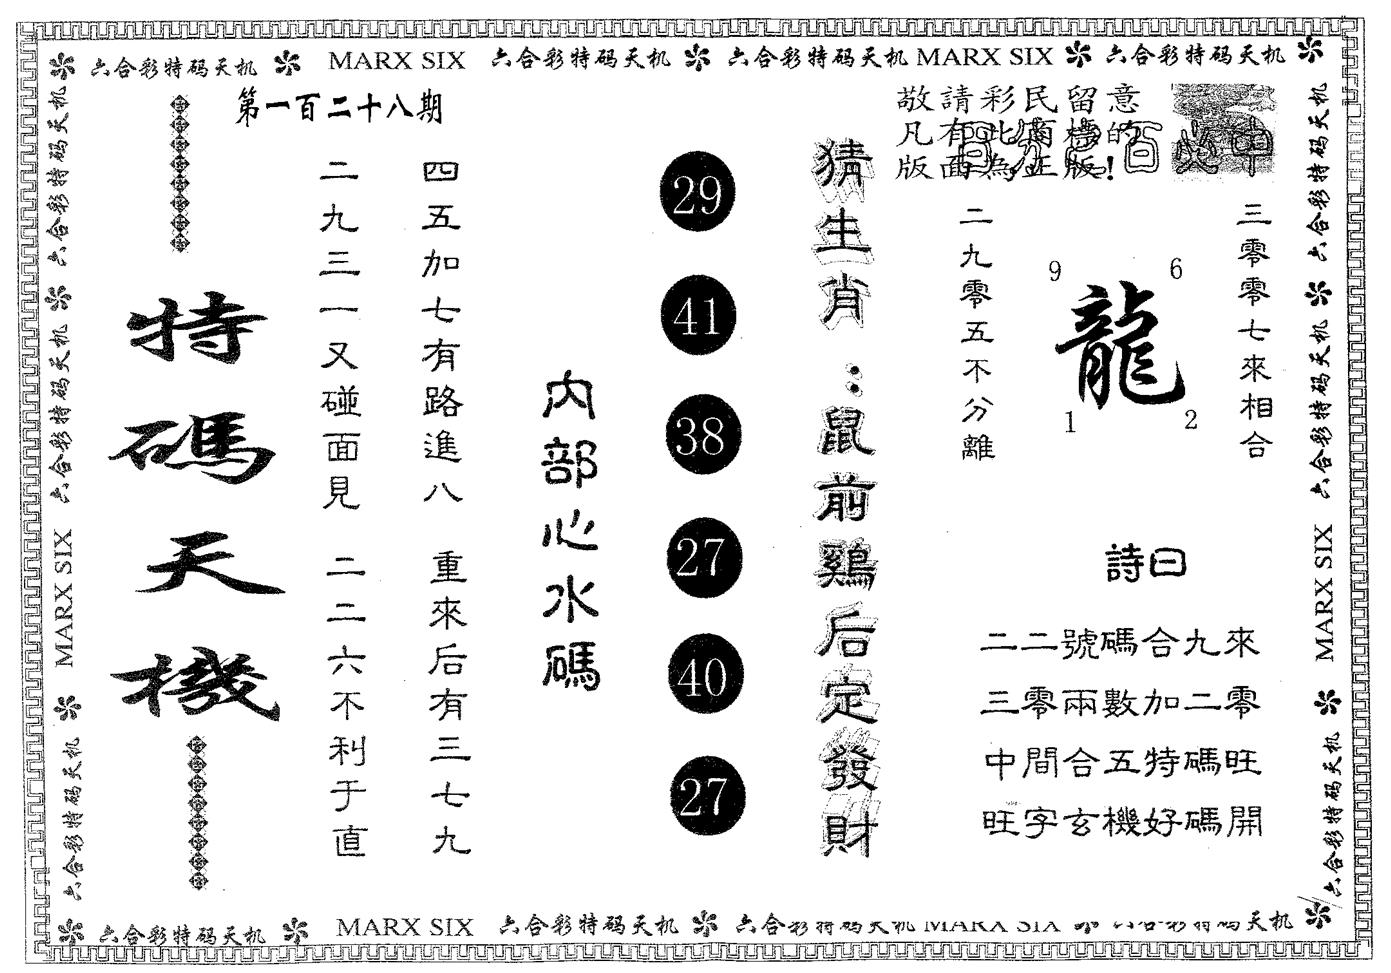 六合彩特码天机 MARX SIX 六合彩特码天机 六合彩特码天机 MARX SIX 六合彩特码天机
第一百二十八期
敬請彩民留意
凡有此商標的
版面為正版!
百分之百必中
特碼天機
二九三一又碰面見 二二六不利于直
四五加七有路進八 重來后有三七九
內部心水碼
29
41
38
27
40
27
猜生肖:鼠前鷄后定發財
二九零五不分離
9
6
龍
1
2
三零零七來相合
詩曰
二二號碼合九來
三零兩數加二零
中間合五特碼旺
旺字玄機好碼開
六合彩特码天机 六合彩特码天机 MARX SIX 六合彩特码天机
六合彩特码天机 六合彩特码天机 MARX SIX 六合彩特码天机
六合彩特码天机 MARX SIX 六合彩特码天机 六合彩特码天机 MARX SIX 六合彩特码天机